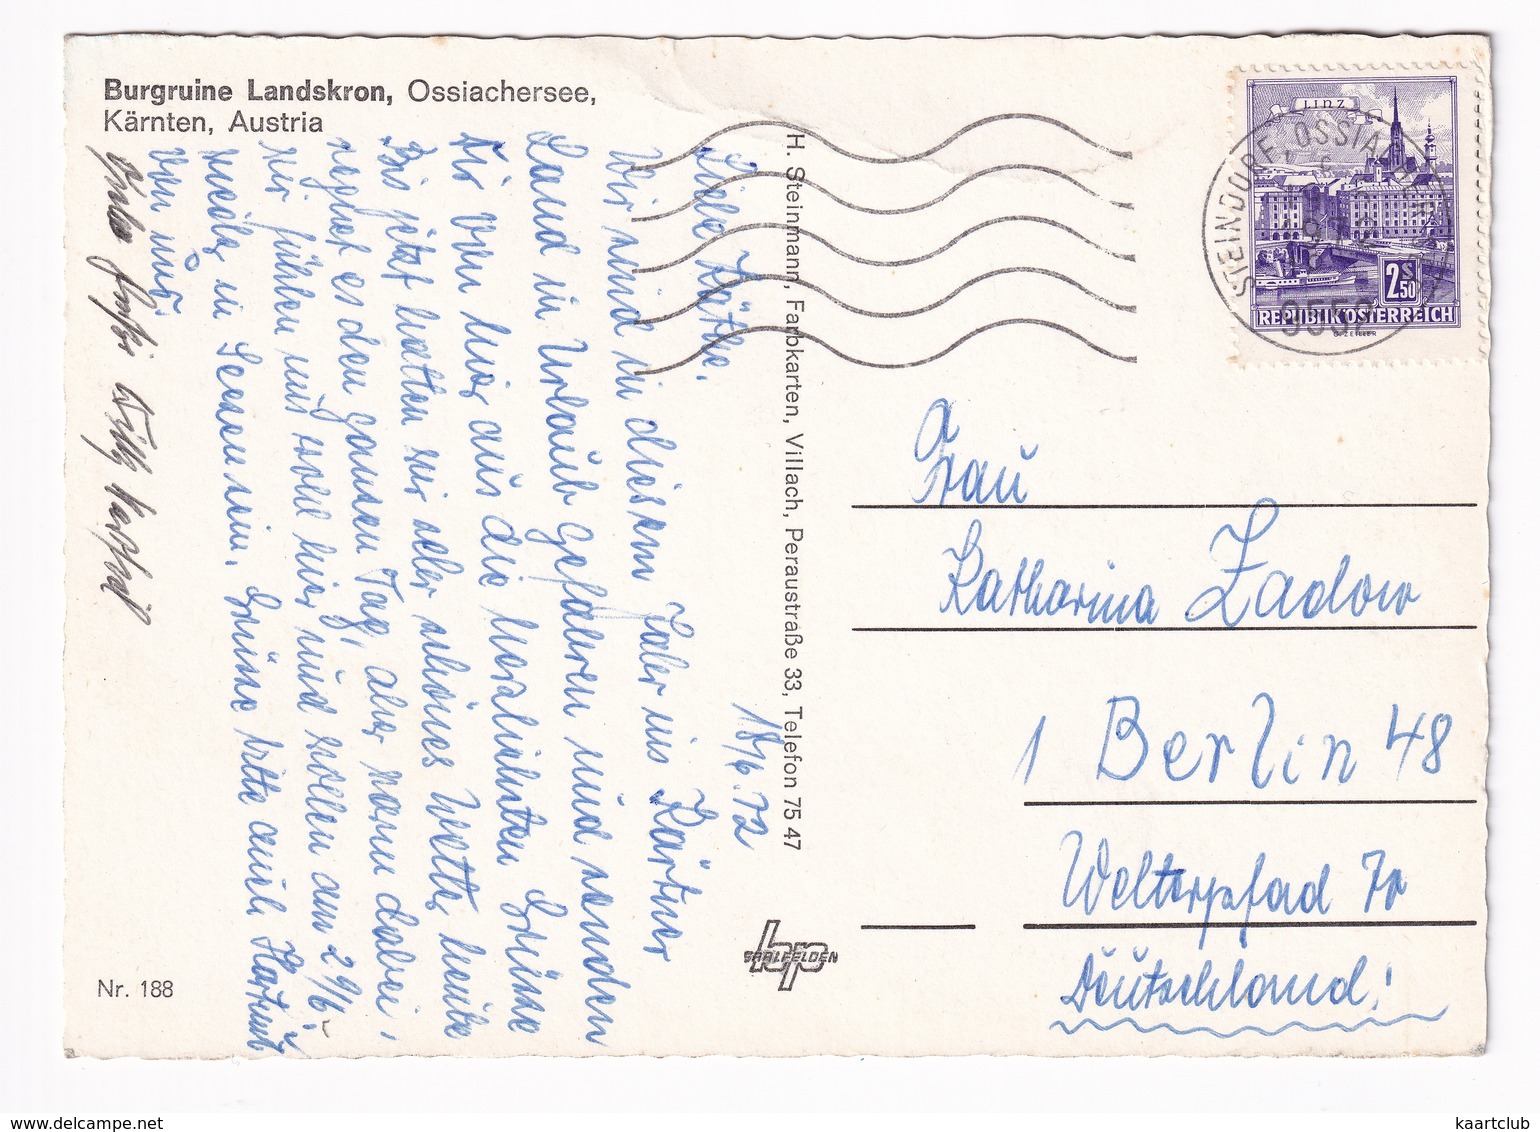 Burgruine Landskron, Ossiachersee,
Kärnten, Austria
18/6.72
Liebe Käthe.
Wir sind in diesem Jahr ins Kärtner
Land in Urlaub gefahren und senden
Dir von hier aus die herzlichsten Grüsse
Bis jetzt hatten wir sehr schönes Wetter, heute
regnet es den ganzen Tag, aber warm dabei,
Wir fühlen uns wohl hier und wollen am 29/6.
wieder in Seesen sein. Grüsse bitte auch Hartmut
von uns.
Viele Grüße Willy
H. Steinmann, Farbkarten, Villach, Peraustraße 33, Telefon 75 47
LINZ
2 S 50
REPUBLIK ÖSTERREICH
STEINDORF, OSSIACHER
9552
Frau
Katharina Zadow
1 Berlin 48
Welterpfad 70
Deutschland!
SAALFELDEN
Nr. 188
www.delcampe.net
kaartclub